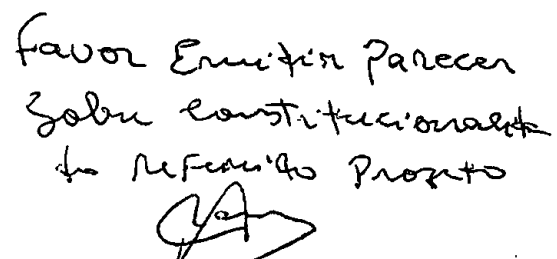 Favor Emitir Parecer
Sobre Constitucionalida
do Referido Projeto